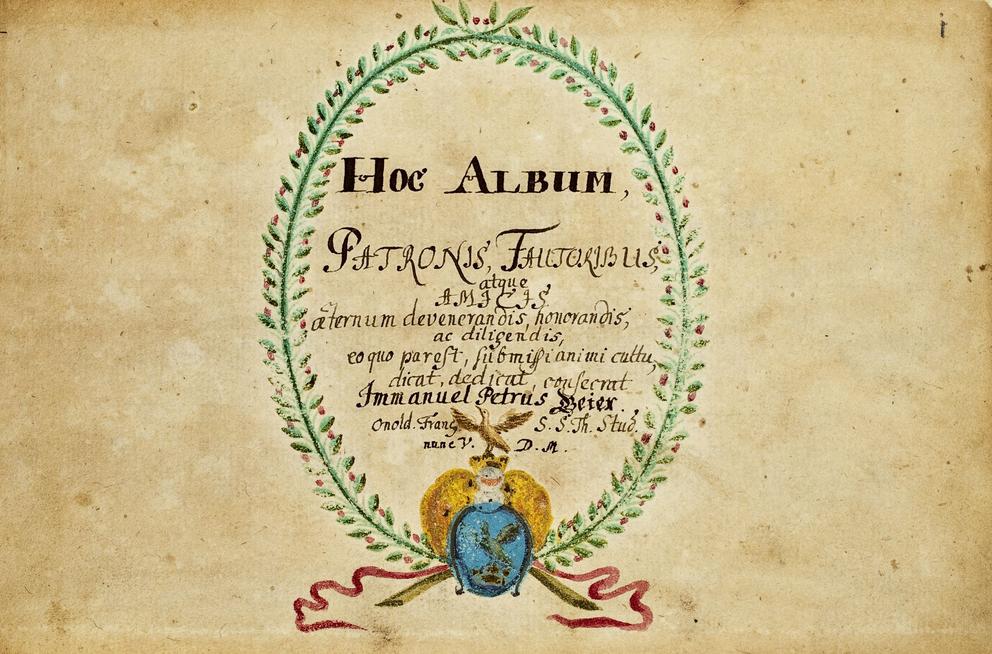 Hoc Album,
Patronis, Fautoribus,
atque
AMICIS
æternum devenerandis, honorandis,
ac diligendis,
eo quo par est, submissi animi cultu,
dicat, dedicat, consecrat
Immanuel Petrus Beier.
Onold. Franc. S.S. Th. Stud.
nunc V. D. M.